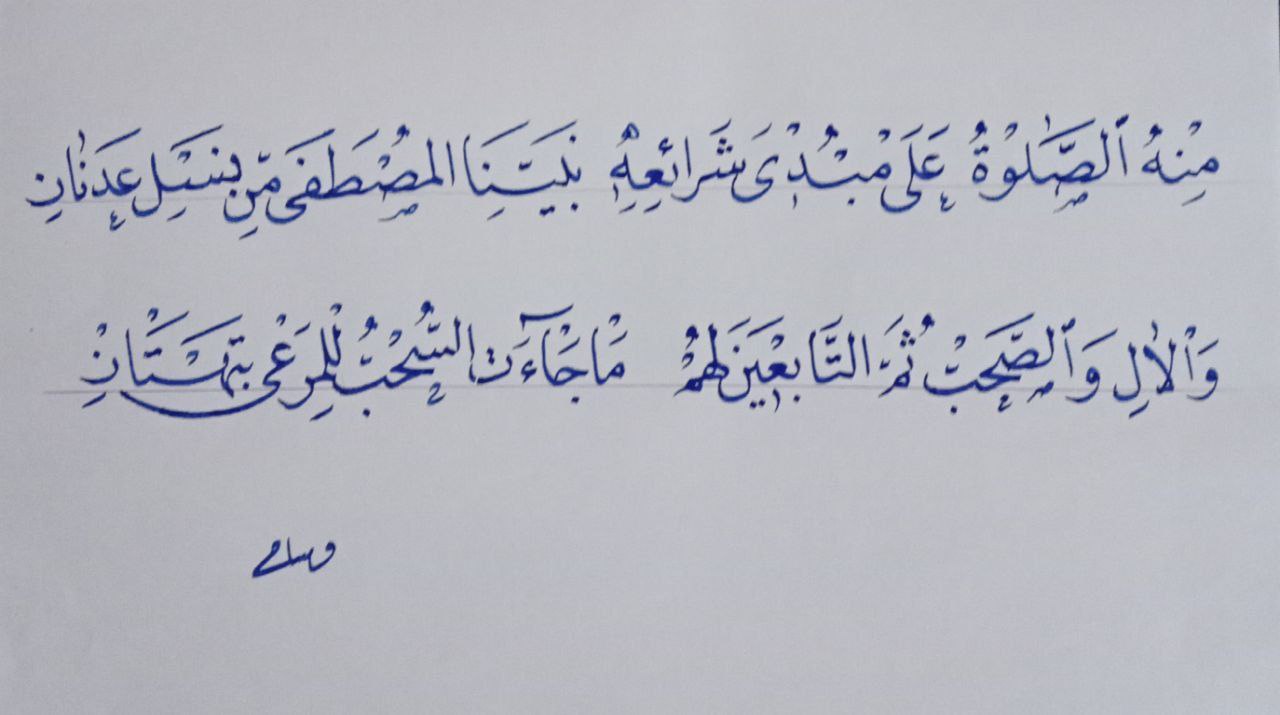 مِنْهُ ٱلصَّلٰوةُ عَلَى مُبْدِى شَرَائِعِهِ نَبِيِّنَا المُصْطَفَى مِّن نَسْلِ عَدْنَانِ
وَٱلْاٰلِ وَٱلصَّحْبِ ثُمَّ التَّابِعِيْنَ لَهُمْ مَا جَآءَتْ السُّحْبُ لِلْمَرْعَى بِتَهْتَانِ